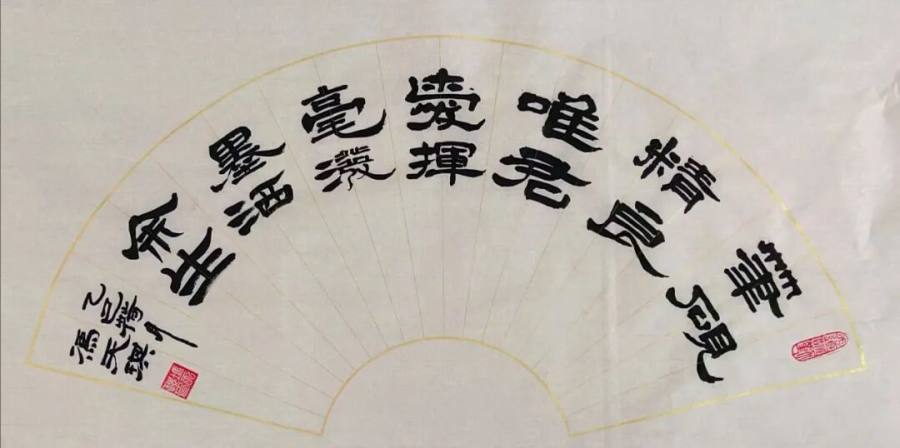 筆硯
精良
唯君
愛揮
毫潑
墨酒
余生
乙巳
馮天